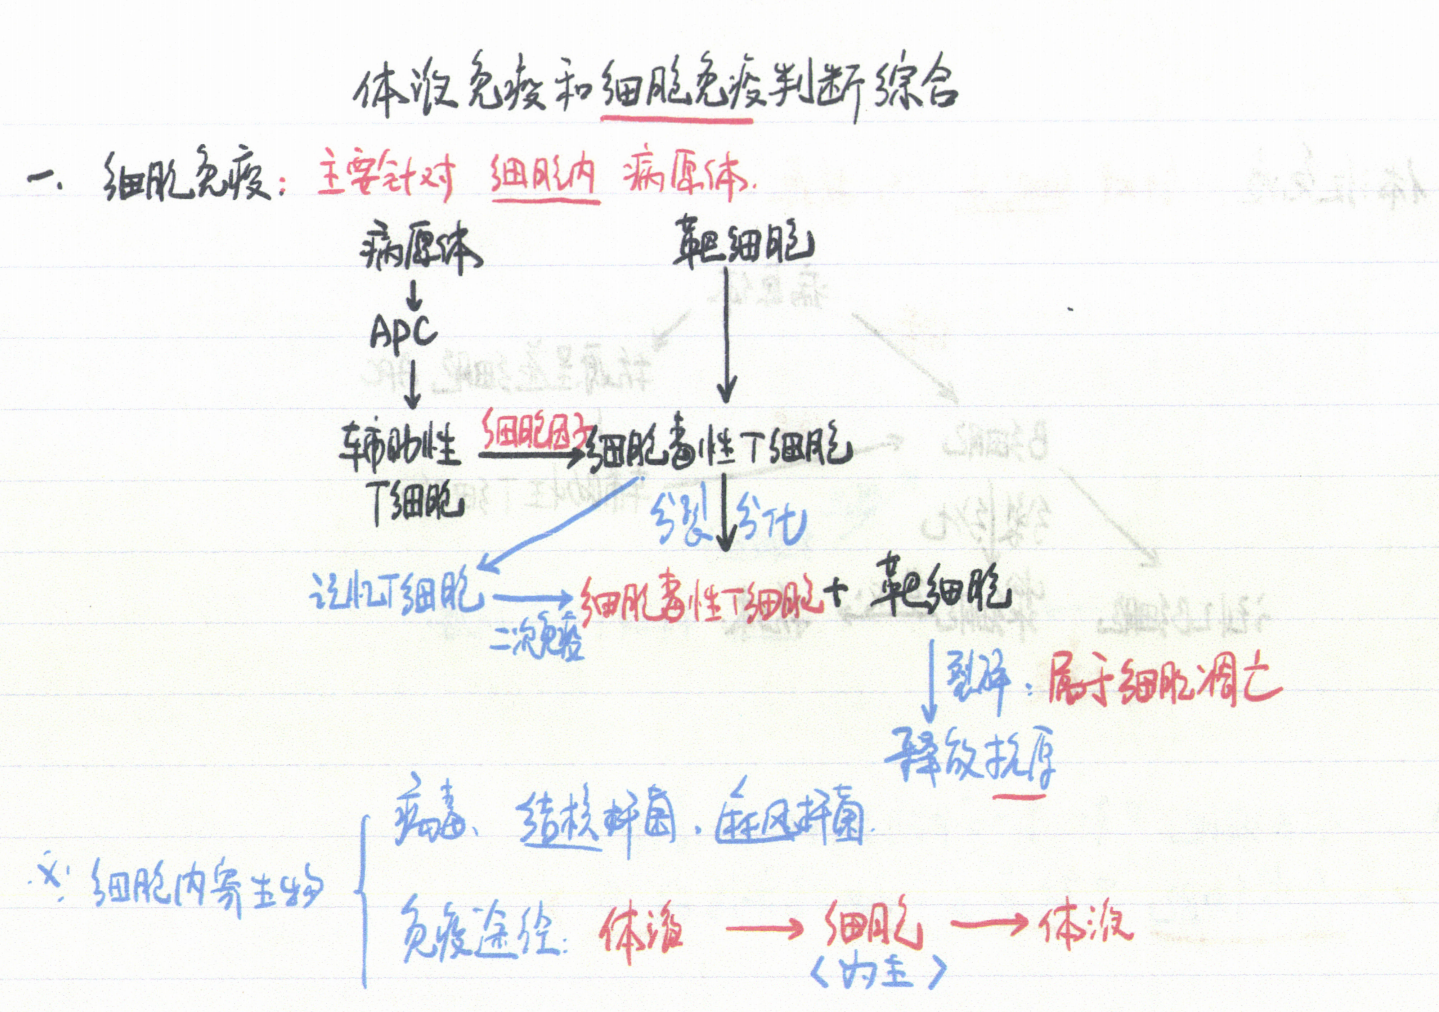 体液免疫和细胞免疫判断综合
一. 细胞免疫: 主要针对 细胞内 病原体.
病原体 靶细胞
APC
辅助性 细胞因子 细胞毒性T细胞
T细胞
分裂 分化
记忆T细胞 细胞毒性T细胞 + 靶细胞
二次免疫
裂解: 属于细胞凋亡
释放抗原
病毒、结核杆菌、麻风杆菌.
※ 细胞内寄生物
免疫途径: 体液 → 细胞 → 体液
<为主>